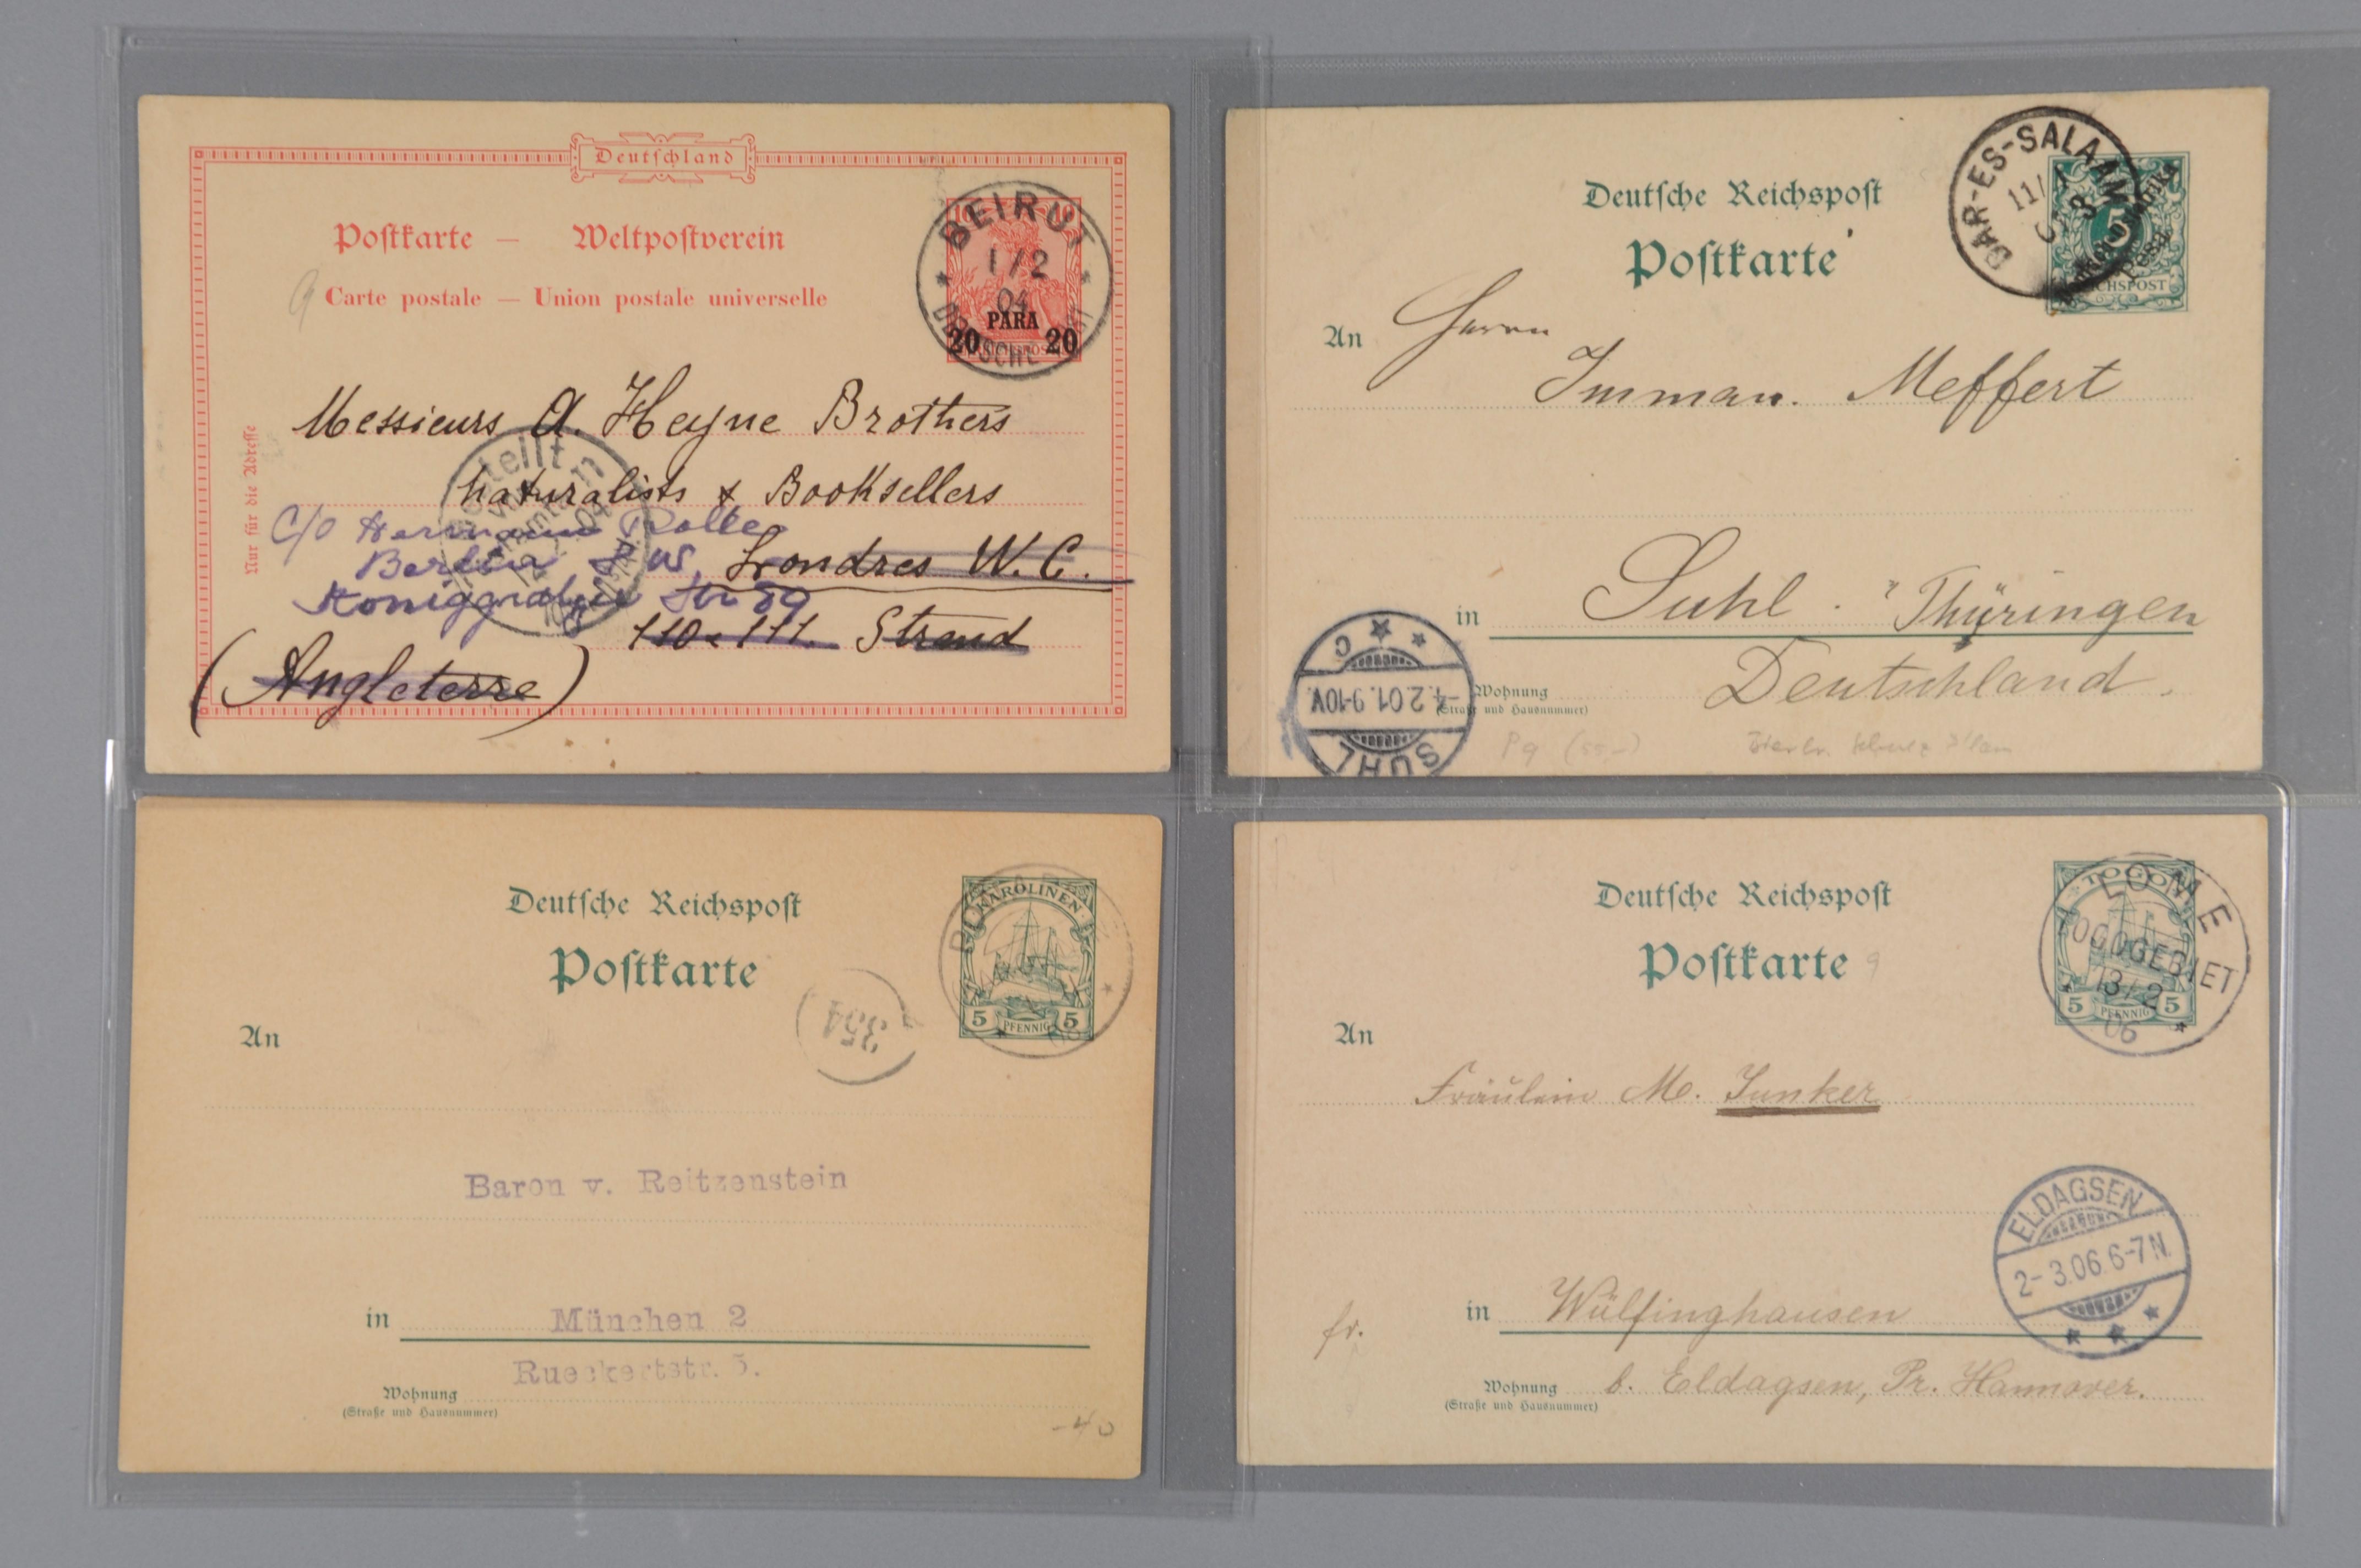 Deutſchland
Poſtkarte — Weltpoſtverein
Carte postale — Union postale universelle
10 10
BEIRUT
1/2
04
DEUTSCHE
PARA
20 20
Nur für die Adreſſe
Messieurs A. Heyne Brothers
Naturalists & Booksellers
Londres W.C.
110 & 111. Strand
(Angleterre)
C/o Hermann Rolle
Berlin S.W.
Königgrätzer Str 89
Bestellt
Deutſche Reichspoſt
Poſtkarte
DAR-ES-SALAAM
11/1
3
5
REICHSPOST
An Herrn
Imman. Meffert
in Suhl. Thüringen
Wohnung
(Straße und Hausnummer)
Deutschland.
C
4.2.01.9-10V.
SUHL
P 9 (55,-)
Deutſche Reichspoſt
Poſtkarte
KAROLINEN
5 PFENNIG 5
354
An
Baron v. Reitzenstein
in München 2
Rueckertstr. 5.
Wohnung
(Straße und Hausnummer)
-40
Deutſche Reichspoſt
Poſtkarte 9
TOGO
5 PFENNIG 5
LOME
TOGOGEBIET
13/2
06
An
Fräulein M. Junker
ELDAGSEN
2-3.06.6-7N.
fr.
in Wülfinghausen
Wohnung b. Eldagsen, Pr. Hannover.
(Straße und Hausnummer)